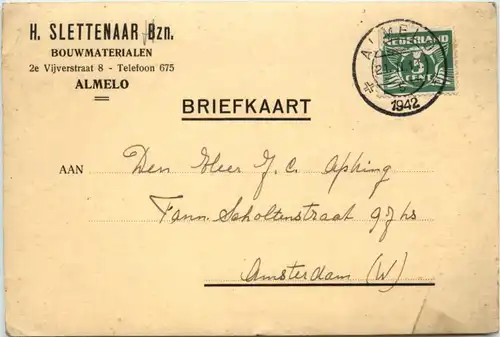 H. SLETTENAAR Bzn.
BOUWMATERIALEN
2e Vijverstraat 8 - Telefoon 675
ALMELO
ALMELO
1942
NEDERLAND
CENT
BRIEFKAART
AAN Den Heer J. C. Aphing
Fann. Scholtenstraat 97 hs
Amsterdam (W)